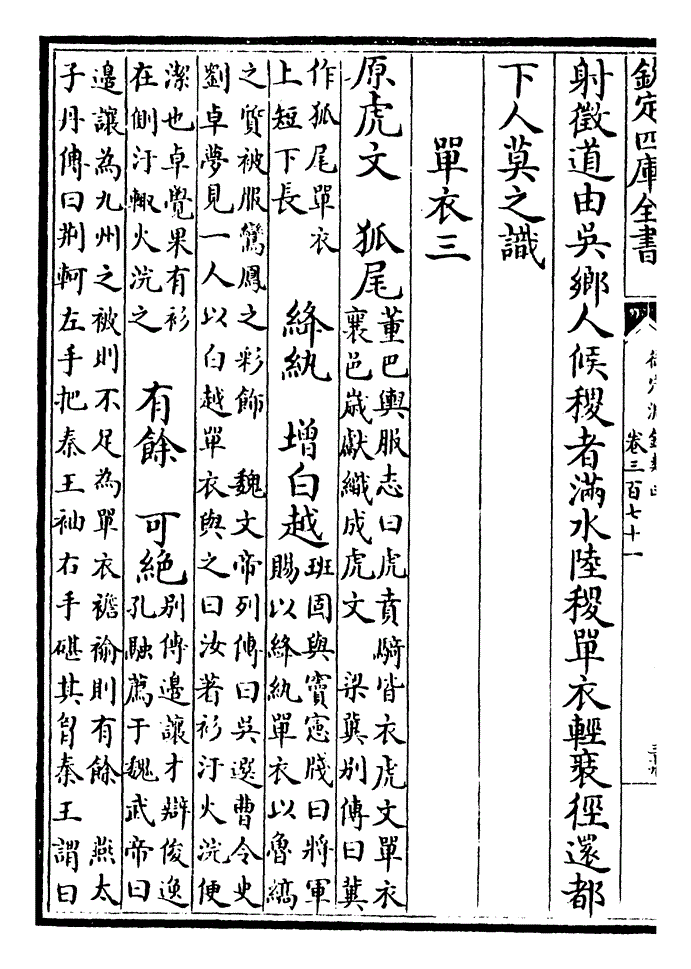 欽定四庫全書
卷三百七十一
射徵道由吳鄉人候稷者滿水陸稷單衣輕裝徑還都
下人莫之識
單衣三
原虎文 狐尾
董巴輿服志曰虎賁騎皆衣虎文單衣
襄邑歲獻織成虎文 梁冀別傳曰冀
作狐尾單衣
上短下長
絳紈 增白越
班固與竇憲牋曰將軍
賜以絳紈單衣以魯縞
之質被服鸞鳳之彩飾 魏文帝列傳曰吳選曹令史
劉卓夢見一人以白越單衣與之曰汝著衫汙火浣便
潔也卓覺果有衫
在側汙輙火浣之
有餘 可絕
別傳邊讓才辯俊逸
孔融薦于魏武帝曰
邊讓為九州之被則不足為單衣襜褕則有餘 燕太
子丹傳曰荆軻左手把秦王袖右手碪其胷秦王謂曰